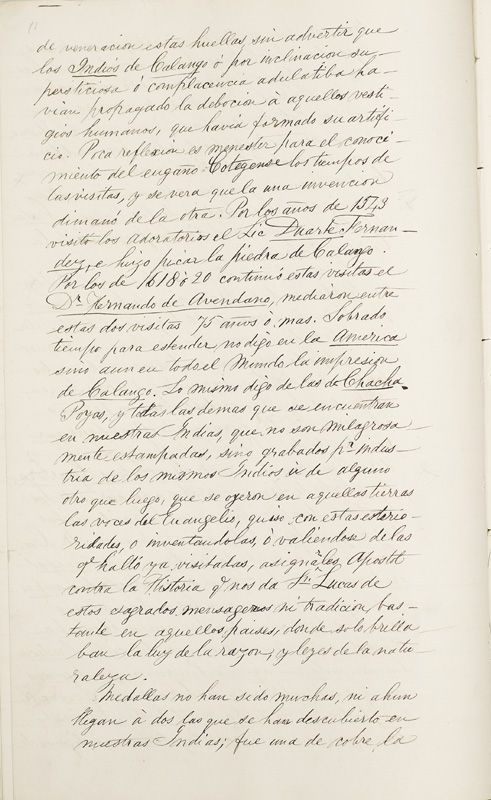 de veneracion estas huellas sin advertir que
los Indios de Calango ó por inclinacion su-
persticiosa ó complacencia adulatiba ha-
vian propagado la debocion à aquellos vesti-
gios humanos, que havia formado su artifi-
cio. Poca reflexion es menester para el conoci-
miento del engaño. Cotegense los tiempos de
las visitas, y se vera que la una invencion
dimanó de la otra. Por los años de 1543
visitó los Adoratorios el Lic Duarte Fernan-
dez, e hizo picar la piedra de Calango.
Por los de 1618 ó 20 continuó estas visitas el
Dr. Hernando de Avendano, mediaron entre
estas dos visitas 75 años ò mas. Sobrado
tiempo para estender no digo en la America
sino aun en todo el Mundo la impresion
de Calango. Lo mismo digo de las de Chacha
Poyas, y todas las demas que se encuentran
en nuestras Indias, que no son milagrosa-
mente estampadas, sino grabados pr. indus-
tría de los mismos Indios ù de alguno
otro que luego, que se oyeron en aquellas tierras
las voces del Evangelio, quiso con estas esterio-
ridades, o inventandolas, ò valiendose de las
q. halló ya visitadas, asignales Apostol
contra la Historia q. nos da Sn. Lucas de
estos sagrados mensageros ni tradicion bas-
tante en aquellos paises, donde solo brilla
ban la luz de la razon, y leyes de la natu-
raleza.
Medallas no han sido muchas, ni ahun
llegan à dos las que se han descubierto en
nuestras Indias; fue una de cobre, la